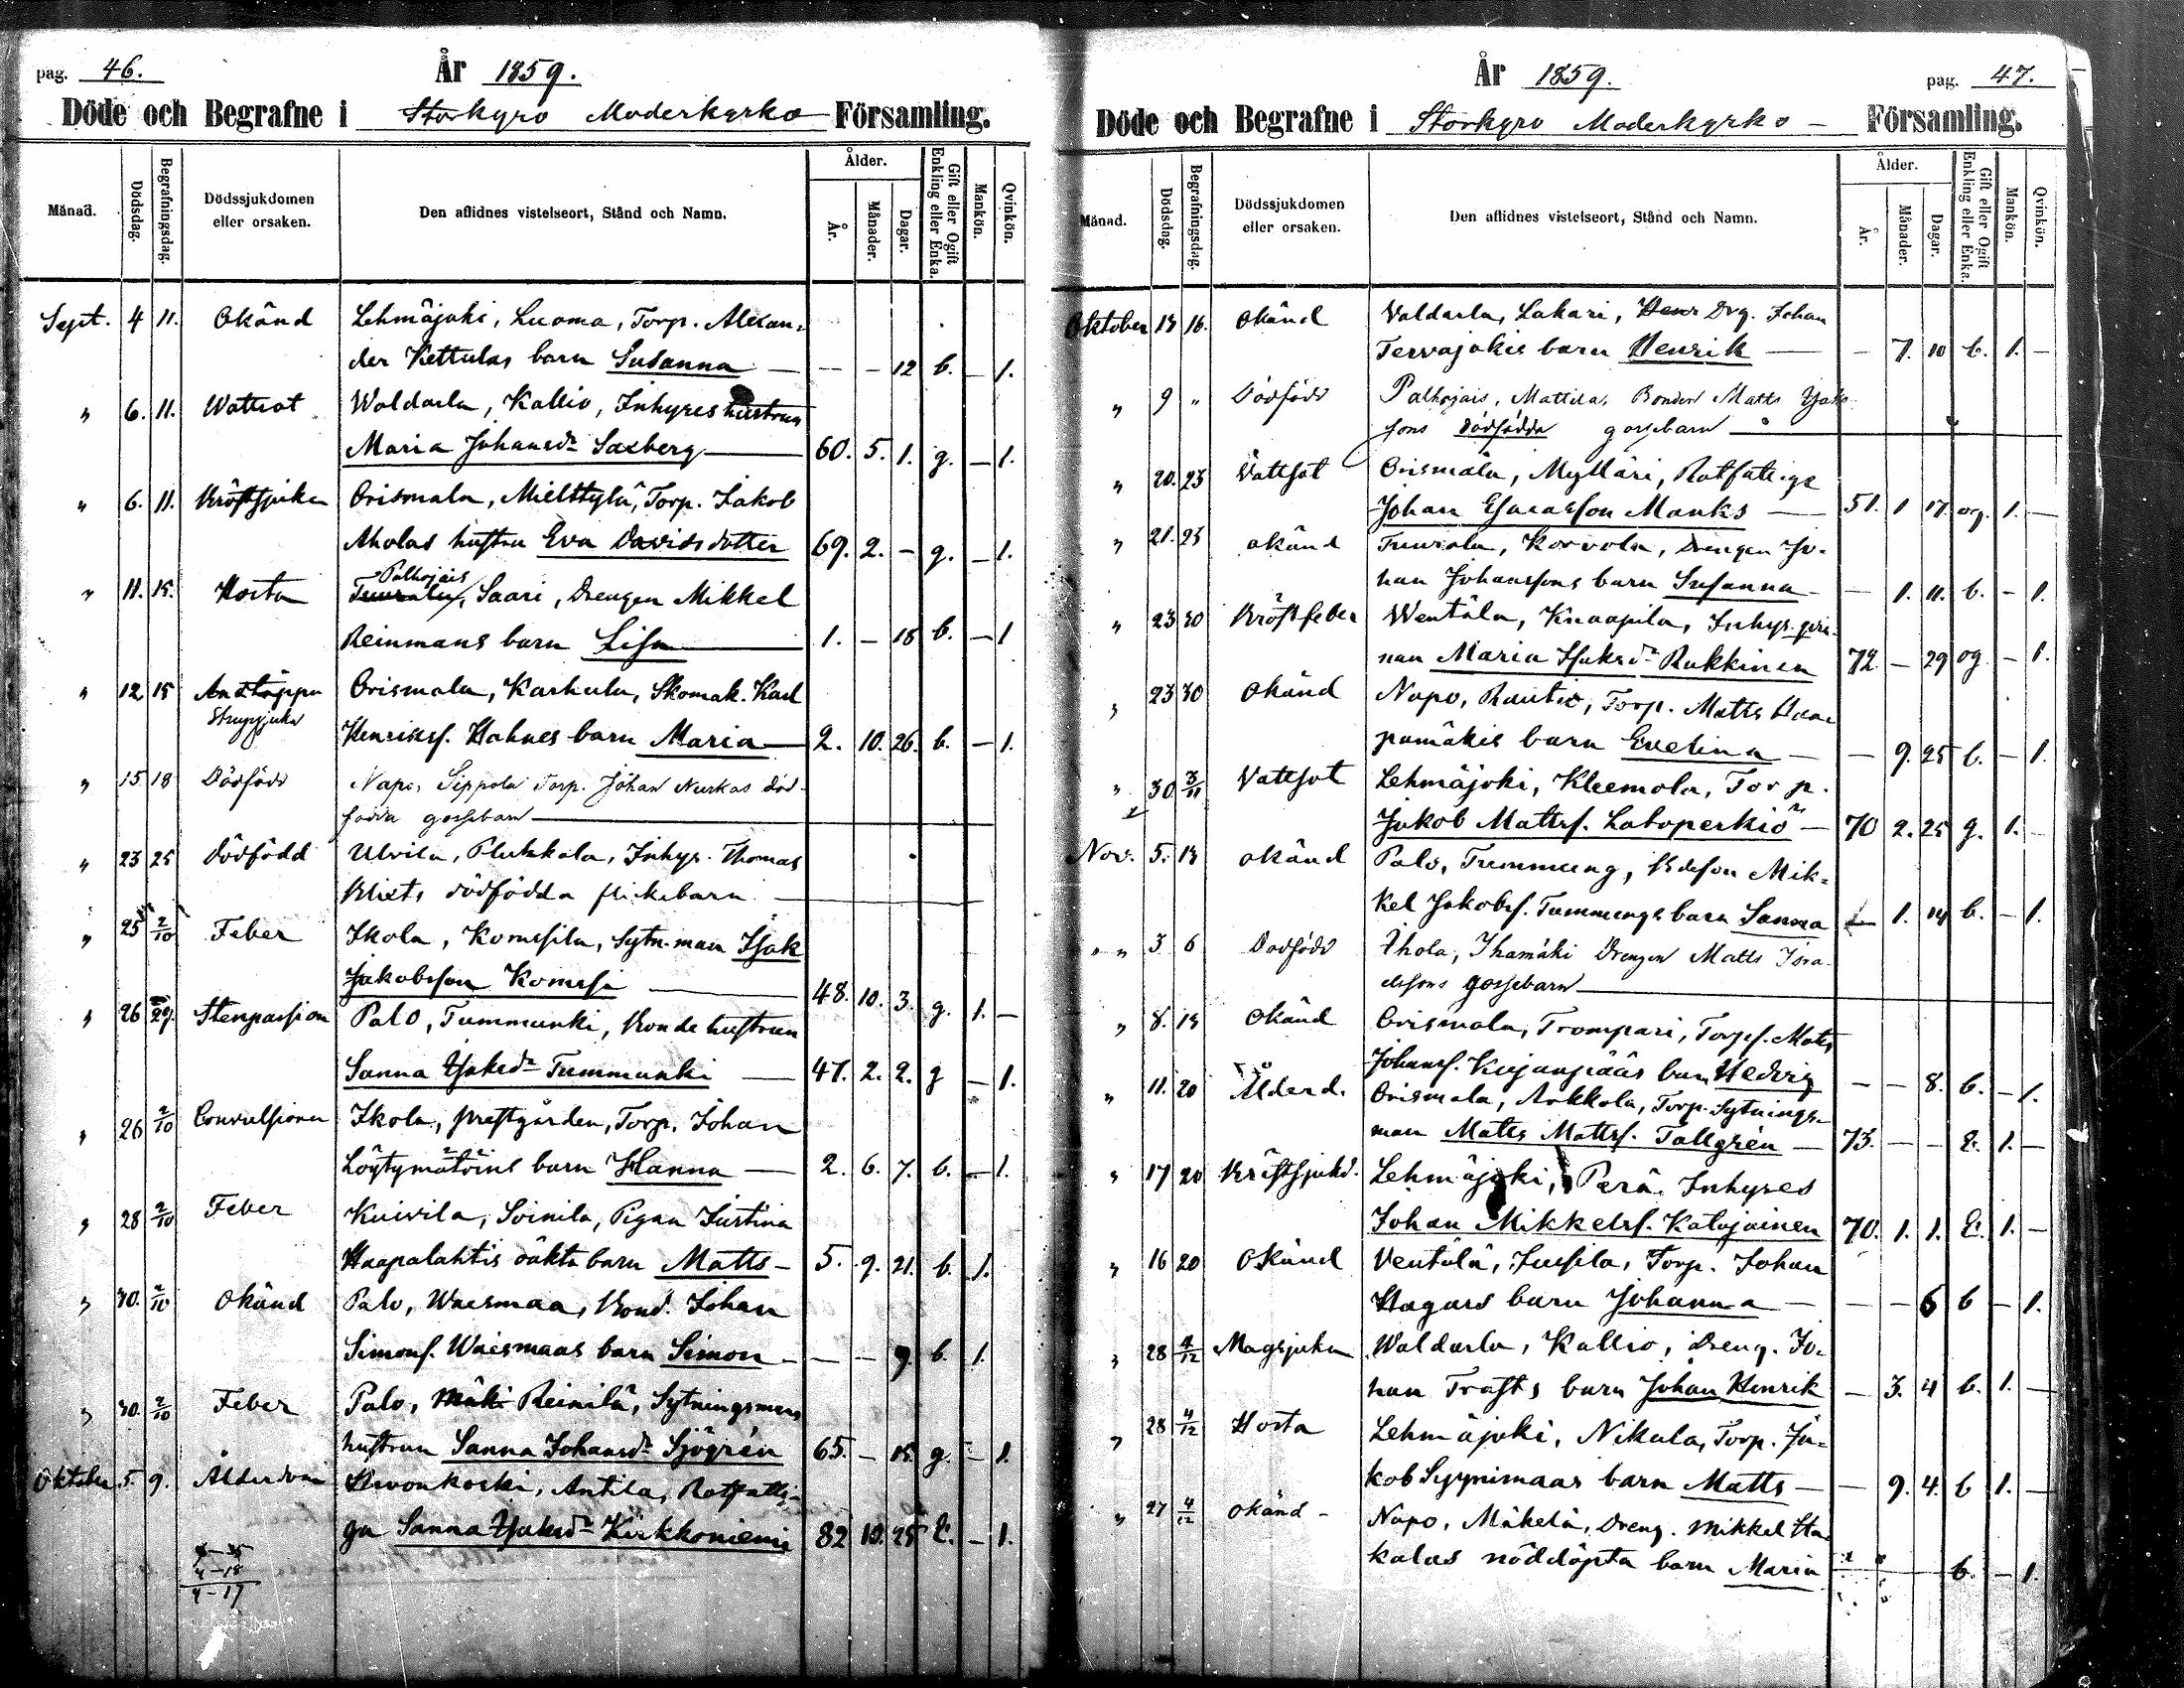 pag. 46.
År 1859.
Döde och Begrafne i Storkyro Moderkyrko Församling.
Månad.
Dödsdag.
Begrafningsdag.
Dödssjukdomen eller orsaken.
Den aflidnes vistelseort, Stånd och Namn.
Ålder.
År.
Månader.
Dagar.
Gift eller Ogift Enkling eller Enka.
Mankön.
Qvinkön.
Sept. 4 11. Okänd Lehmäjoki, Luoma, Torp. Alexan-
der Kettulas barn Susanna — — — 12 b. — 1.
" 6. 11. Wattsot Waldarla, Kallio, Inhyses hustrun
Maria Johansdr Saxberg 60. 5. 1. g. — 1.
" 6. 11. Bröstsjukan Orismala, Mielttylä, Torp. Jakob
Aholas hustru Eva Davidsdotter 69. 2. — g. — 1.
Palhojais
" 11. 15. Hosta Tuurala, Saari, Drengen Mikkel
Reinmans barn Lisa 1. — 18 b. — 1
" 12 15 Andtäppa Orismala, Karhula, Skomak. Karl
Strupsjuka
Henriksf. Hahnes barn Maria 2. 10. 26. b. — 1.
" 15 18 Dödfödd Napo, Sippola Torp. Johan Nurkas död-
födda gossebarn
" 23 25 Dödfödd Ulvila, Plukkala, Inhys. Thomas
Blixts dödfödda flickebarn
" 25 2/10 Feber Ikola, Komsila, Sytn. man Isak
Jakobsson Komsi 48. 10. 3. g. 1. —
" 26 29. Stenpassion Palo, Tummunki, Bondehustrun
Sanna Isaksdr Tummunki 47. 2. 2. g — 1.
" 26 2/10 Convulsioner Ikola, prestgården, Torp. Johan
Löytymätöins barn Hanna 2. 6. 7. b. — 1.
" 28 2/10 Feber Kuivila, Soinila, Pigan Justina
Haapalahtis oäkta barn Matts 5. 9. 21. b. 1.
" 30. 2/10 Okänd Palo, Waismaa, Bond. Johan
Simonf. Waismaas barn Simon — — 9. b. 1.
" 30. 2/10 Feber Palo, Mäki Reinilä, Sytningsmans
hustrun Sanna Johansdr Sjögrén 65. — 15. g. — 1.
Oktober 5. 9. Ålderdom Hevonkoski, Antila, Rotfatti-
ga Sanna Isaksdr Kirkkoniemi 82 10. 25 E. — 1.
4-18
4-17
År 1859.
pag. 47.
Döde och Begrafne i Storkyro Moderkyrko — Församling.
Månad.
Dödsdag.
Begrafningsdag.
Dödssjukdomen eller orsaken.
Den aflidnes vistelseort, Stånd och Namn.
Ålder.
År.
Månader.
Dagar.
Gift eller Ogift Enkling eller Enka.
Mankön.
Qvinkön.
Oktober 13 16. Okänd Valdarla, Lakari, Henr Drg. Johan
Tervajokis barn Henrik — 7. 10 b. 1. —
" 9 " Dödfödd Palhojais, Mattila, Bonden Matts Isaks-
sons dödfödda gossebarn
" 20. 23 Vattsot Orismala, Mylläri, Rotfattige
Johan Esaiasson Manks 51. 1 17. og. 1. —
" 21. 23 okänd Tuurala, Korvola, Drengen Jo-
han Johanssons barn Susanna — 1. 11. b. — 1.
" 23 30 Bröstfeber Wentälä, Knaapila, Inhys. qvin-
nan Maria Isaksdr Rukkinen 72 — 29 og — 1.
" 23 30 Okänd Napo, Rautio, Torp. Matts Haa-
pamäkis barn Evelina — 9. 25 b. — 1.
" 30 3/11 Vattsot Lehmäjoki, Kleemola, Torp.
Jakob Mattsf. Latoperkiö 70 2. 25 g. 1.
Nov. 5. 13 okänd Palo, Tummung, Bdeson Mik-
kel Jakobsf. Tummungs barn Sanna 1. 14 b. — 1.
" " 3 6 Dödfödd Ihola, Ihamäki Drengen Matts Isra-
elssons gossebarn
" 8. 13 Okänd Orismala, Trompari, Torpf. Matts
Johansf. Kujanpääs barn Hedvig — — 8. b. — 1.
" 11. 20 Ålderd. Orismala, Arkkola, Torp. Sytnings-
man Matts Mattsf. Tallgrén 73. — — E. 1. —
" 17 20 Bröstsjukd. Lehmäjoki, Perä, Inhyses
Johan Mikkelsf. Katajainen 70. 1. 1. E. 1. —
" 16 20 Okänd Ventälä, Jussila, Torp. Johan
Hagars barn Johanna — — 6 b — 1.
" 28 4/12 Magsjukan Waldarla, Kallio, Dreng. Jo-
han Trasts barn Johan Henrik — 3. 4 b. 1. —
" 28 4/12 Hosta Lehmäjoki, Nikula, Torp. Ja-
kob Syynimaas barn Matts — 9. 4. b 1. —
" 27 4/12 okänd - Napo, Mäkelä, Dreng. Mikkel Ha-
kalas nöddöpta barn Maria b. — 1.